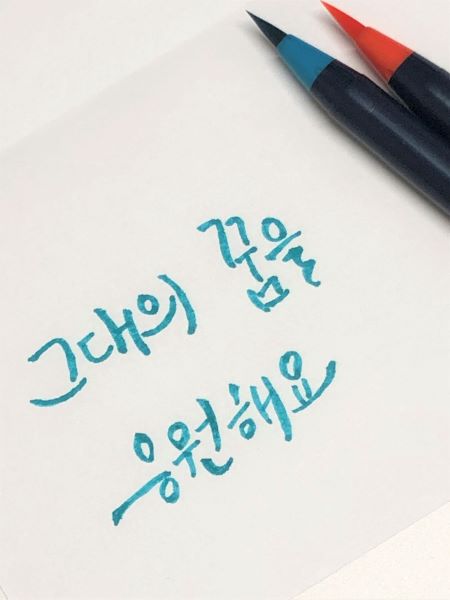 그대의 꿈을
응원해요